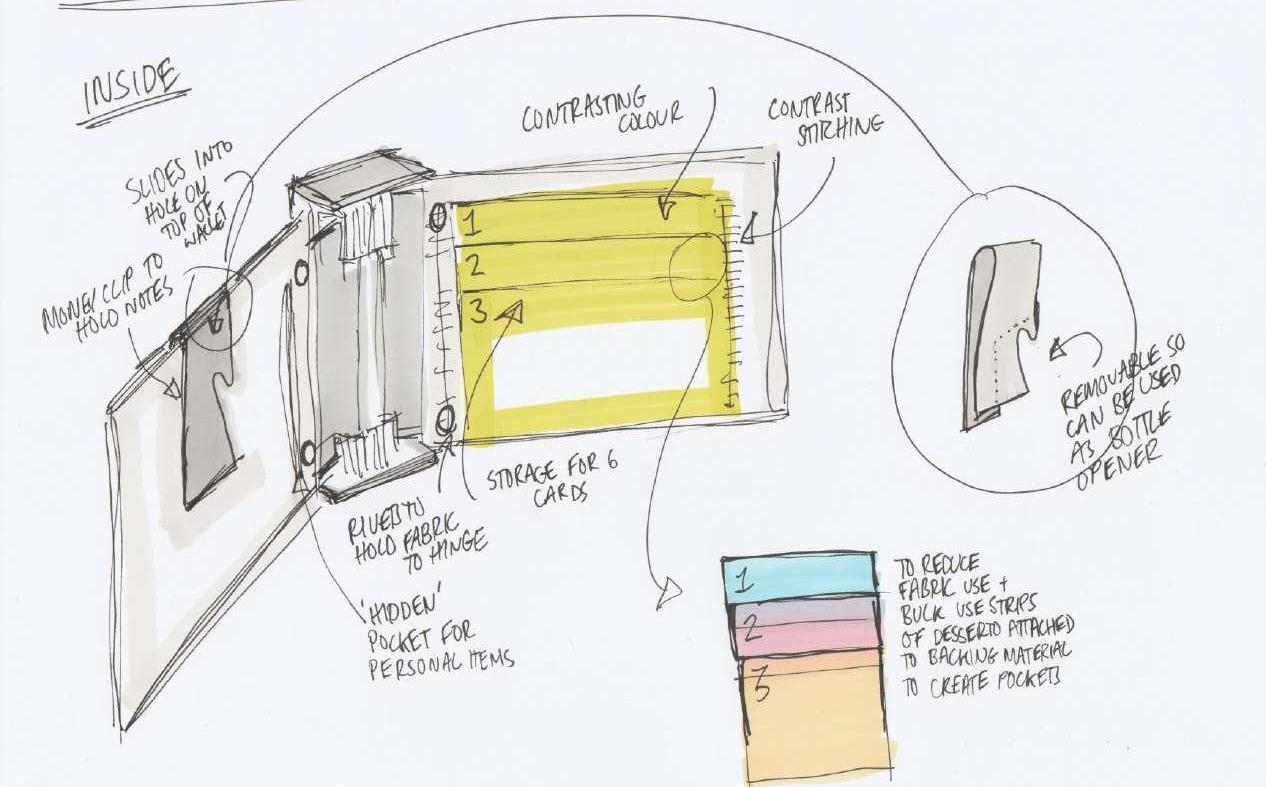 INSIDE
SLIDES INTO
HOLE ON
TOP OF
WALLET
MONEY CLIP TO
HOLD NOTES
CONTRASTING
COLOUR
CONTRAST
STITCHING
1
2
3
REMOVABLE SO
CAN BE USED
AS BOTTLE
OPENER
STORAGE FOR 6
CARDS
RIVET TO
HOLD FABRIC
TO HINGE
'HIDDEN'
POCKET FOR
PERSONAL ITEMS
1
2
3
TO REDUCE
FABRIC USE +
BULK USE STRIPS
OF DESSERTO ATTACHED
TO BACKING MATERIAL
TO CREATE POCKETS